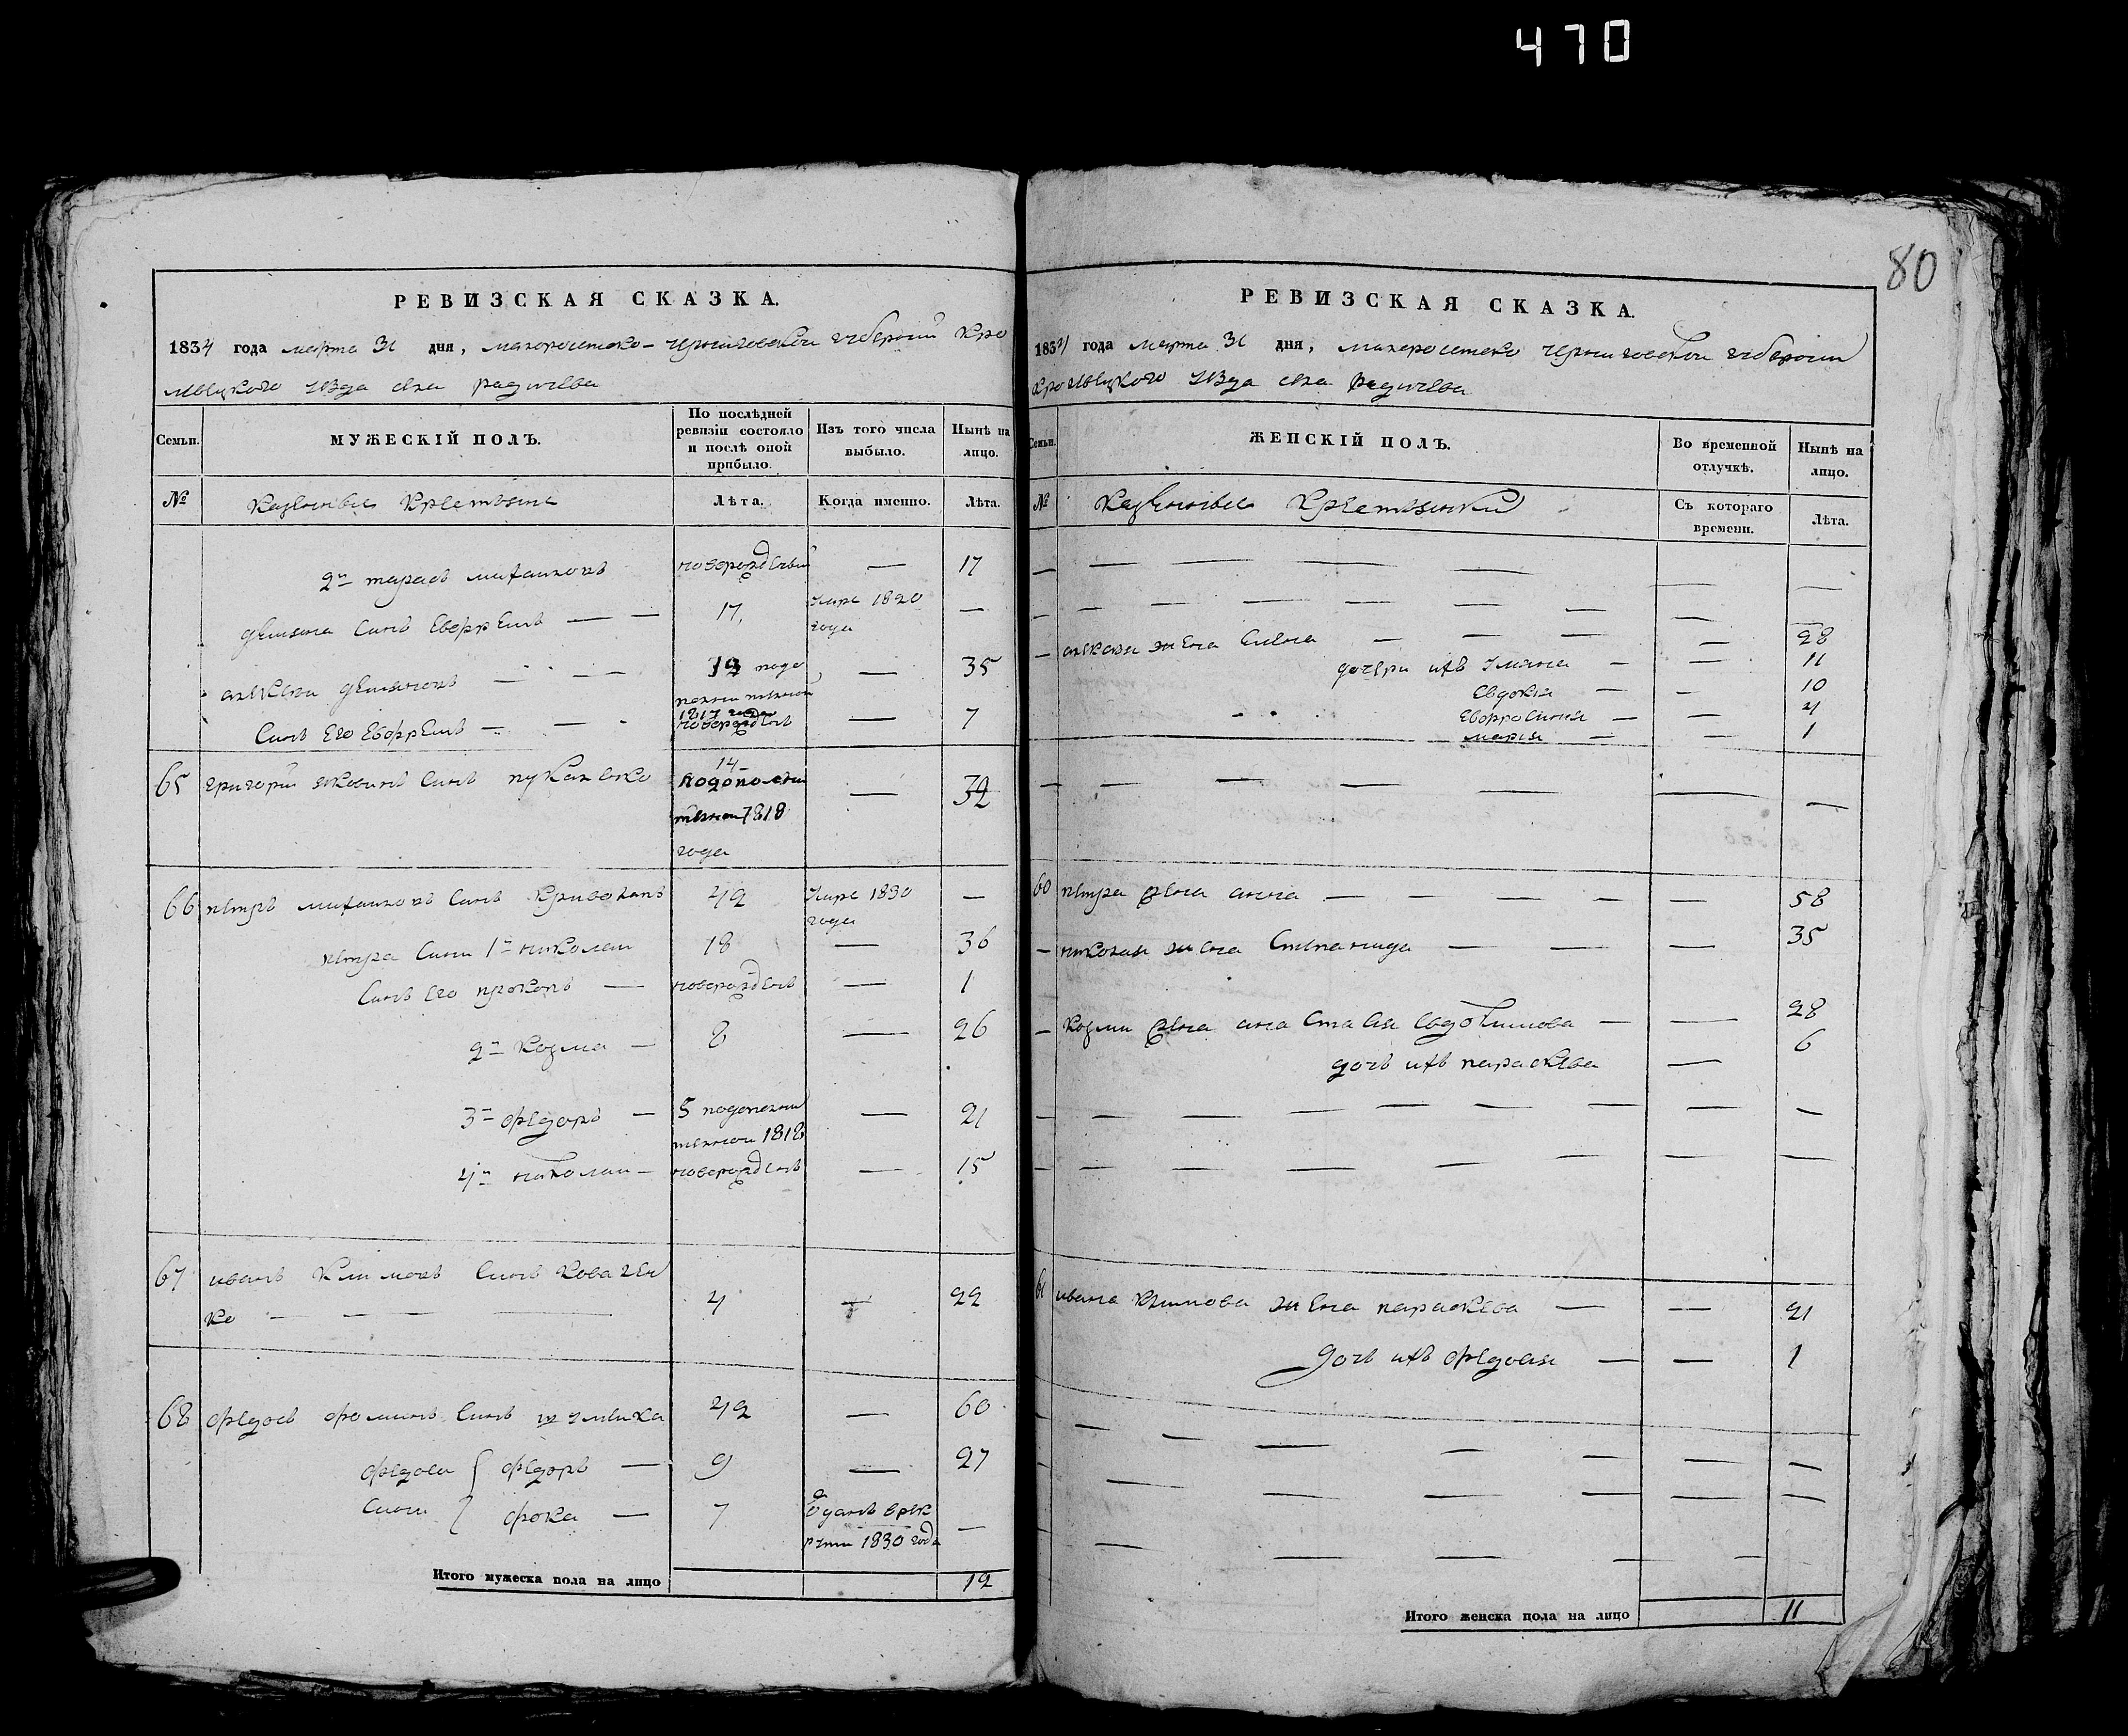 470
80
РЕВИЗСКАЯ СКАЗКА.
1834 года марта 31 дня, малоросийско-черниговской губернии Кро
левецкого уезда села радичева
Семьи.
МУЖЕСКІЙ ПОЛЪ.
По послѣдней ревизіи состояло и послѣ оной прибыло.
Изъ того числа выбыло.
Нынѣ на лицо.
№
Казенные Крестьяне
Лѣта.
Когда именно.
Лѣта.
2й тарасъ михайловъ новорожденный — 17
демяна синъ Евфремъ — — 17, умре 1820 года —
алексей демяновъ — — — 19 подополнительной 1817 года — 35
Синъ Его Евфремъ — — новорожденъ — 7
65 григорий яковлевъ синъ пукаленко 14 подополнительной 1818 года — 32
66 петръ михайловъ синъ Криволапъ 42 умре 1830 года —
петра сини 1й николай 18 — 36
Синъ его прокопъ — новорожденъ — 1
2й Козма — 8 — 26
3й федоръ — 5 подополнительной 1818 — 21
4й николай — новорожденъ — 15
67 иванъ Климовъ Синъ Ковален
ко — — — — 4 — 22
68 федосъ фоминъ Синъ шумейка 42 — 60
федоса сини федоръ — 9 — 27
фока — 7 отданъ врек
рути 1830 года —
Итого мужеска пола на лицо 12
РЕВИЗСКАЯ СКАЗКА.
1834 года марта 31 дня, малоросийско черниговской губернии
Кролевецкого уезда села радичева
Семьи.
ЖЕНСКІЙ ПОЛЪ.
Во временной отлучкѣ.
Нынѣ на лицо.
№
Казенные Крестьянки
Съ котораго времени.
Лѣта.
— алексея жена елена — — — — 28
дочери ихъ ульяна — — 11
Евдокия — — 10
Евфросиния — — 4
мария — — 1
60 петра жена анна — — — — — 58
— николая жена Степанида — — — 35
— Козми жена анастасия евдокимова — — 28
дочь ихъ параскева — 6
61 ивана климова жена параскева — — 21
дочь ихъ федосия — — 1
Итого женска пола на лицо 11